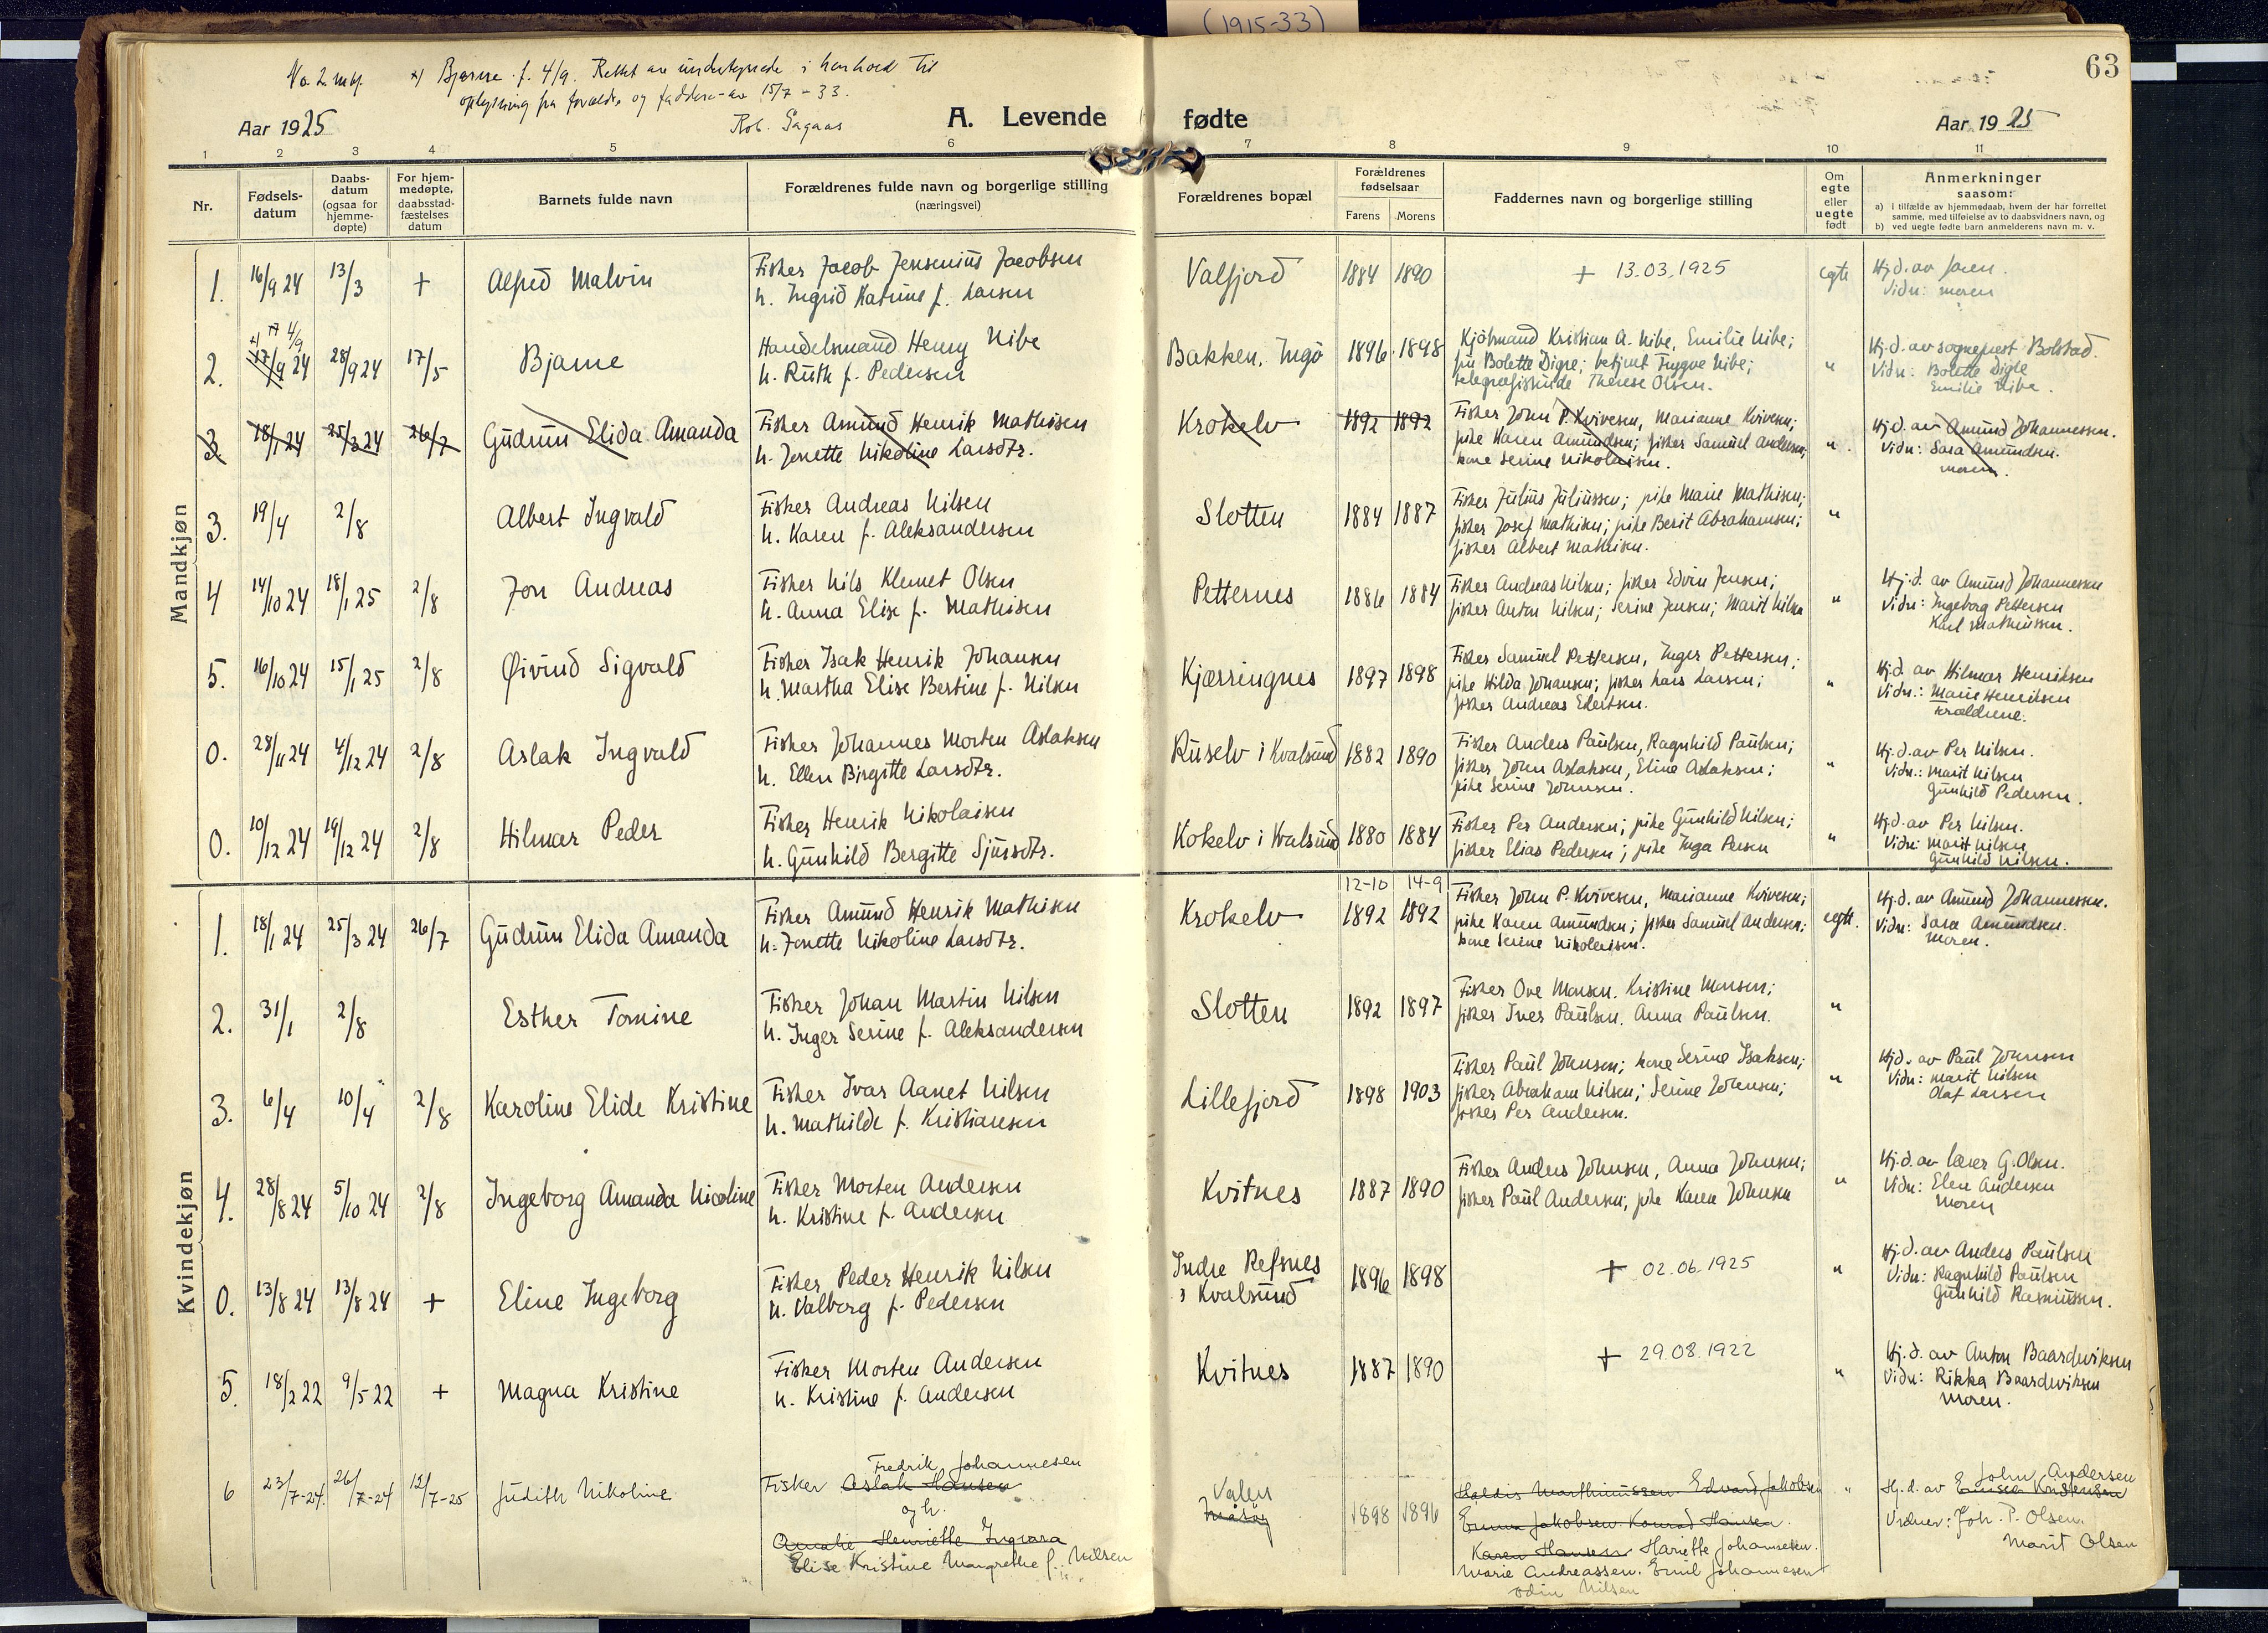 (1915-33)
63
No. 2 mkj. x) Bjarne f. 4/9. Rettet av undertegnede i henhold til
oplysning fra forældre og faddere - av 15/7 - 33.
Rob. Sagaas
Aar 1925
A. Levende fødte
Aar 1925
1 2 3 4 5 6 7 8 9 10 11
Nr.
Fødsels-
datum
Daabs-
datum
(ogsaa for
hjemme-
døpte)
For hjem-
medøpte,
daabsstad-
fæstelses
datum
Barnets fulde navn
Forældrenes fulde navn og borgerlige stilling
(næringsvei)
Forældrenes bopæl
Forældrenes
fødselsaar
Farens Morens
Faddernes navn og borgerlige stilling
Om
egte
eller
uegte
født
Anmerkninger
saasom:
a) I tilfælde av hjemmedaab, hvem der har forrettet
samme, med tilføielse av to daabsvidners navn, og
b) ved uegte fødte barn anmelderens navn m. v.
Mandkjøn
1. 16/9 24 13/3 + Alfred Malvin
Fisker Jacob Jensenius Jacobsen
h. Ingrid Katrine f. Larsen
Valfjord 1884 1890 + 13.03.1925 egte
Hj.d. av faren.
Vidn: moren
2. 17/9 24 x) 4/9 28/9 24 17/5 Bjarne
Handelsmand Henry Nibe
h. Ruth f. Pedersen
Bakken, Ingö 1896 1898
Kjöbmand Kristian A. Nibe, Emilie Nibe;
fru Bolette Digre; betjent Trygve Nibe;
telegrafistinde Therese Olsen.
"
Hj.d. av sogneprest Bolstad.
Vidn: Bolette Digre
Emilie Nibe.
3. 18/1 24 25/3 24 26/7 Gudrun Elida Amanda
Fisker Amund Henrik Mathisen
h. Jonette Nikoline Larsdtr.
Krokelv 1892 1892
Fisker John P. Kvivesen, Marianne Kvivesen;
pike Karen Amundsen; fisker Samuel Andersen;
kone Serine Nikolaisen.
"
Hj.d. av Amund Johannessen.
Vidn: Sara Amundsen.
moren.
3. 19/4 2/8 Albert Ingvald
Fisker Andreas Nilsen
h. Karen f. Aleksandersen
Slotten 1884 1887
Fisker Julius Juliussen; pike Marie Mathisen;
fisker Josef Mathisen; pike Berit Abrahamsen;
fisker Albert Mathisen.
"
4 14/10 24 18/1 25 2/8 Jon Andreas
Fisker Nils Klemet Olsen
h. Anna Elise f. Mathisen
Petternes 1886 1884
Fisker Andreas Nilsen; fisker Edvin Jensen;
fisker Anton Nilsen; Serine Jensen; Marit Nilsen
"
Hj.d. av Amund Johannessen
Vidn: Ingeborg Pettersen
Karl Mathiussen.
5. 16/10 24 15/1 25 2/8 Øivind Sigvald
Fisker Isak Henrik Johansen
h. Martha Elise Bertine f. Nilsen
Kjærringnes 1897 1898
Fisker Samuel Pettersen, Inger Pettersen;
pike Hilda Johansen; fisker Lars Larsen;
fisker Andreas Edertsen.
"
Hj.d. av Hilmar Henriksen
Vidn.: Marie Henriksen
forældrene.
0. 28/11 24 4/12 24 2/8 Aslak Ingvald
Fisker Johannes Morten Aslaksen
h. Ellen Birgitte Larsdtr.
Ruselv i Kvalsund 1882 1890
Fisker Anders Paulsen, Ragnhild Paulsen;
fisker John Aslaksen, Eline Aslaksen;
pike Serine Johnsen.
"
Hj.d. av Per Nilsen.
Vidn.: Marit Nilsen
Gunhild Pedersen.
0. 10/12 24 19/12 24 2/8 Hilmar Peder
Fisker Henrik Nikolaisen
h. Gunhild Bergitte Sjursdtr.
Kokelv i Kvalsund 1880 1884
Fisker Per Andersen; pike Gunhild Nilsen;
fisker Elias Pedersen; pike Inga Persen
"
Hj.d. av Per Nilsen.
Vidn: Marit Nilsen
Gunhild Nilsen.
Kvindekjøn
1. 18/1 24 25/3 24 26/7 Gudrun Elida Amanda
Fisker Amund Henrik Mathisen
h. Jonette Nikoline Larsdtr.
Krokelv 12-10 1892 14-9 1892
Fisker John P. Kvivesen, Marianne Kvivesen;
pike Karen Amundsen; fisker Samuel Andersen;
kone Serine Nikolaisen.
egte.
Hj.d. av Amund Johannessen.
Vidn: Sara Amundsen.
Moren.
2. 31/1 2/8 Esther Tomine
Fisker Johan Martin Nilsen
h. Inger Serine f. Aleksandersen
Slotten 1892 1897
Fisker Ove Monsen. Kristine Monsen;
fisker Iver Paulsen. Anna Paulsen.
"
3. 6/4 10/4 2/8 Karoline Elide Kristine
Fisker Ivar Aanet Nilsen
h. Mathilde f. Kristiansen
Lillefjord 1898 1903
Fisker Paul Johnsen; kone Serine Isaksen;
fisker Abraham Nilsen; Serine Johnsen;
fisker Per Andersen.
"
Hj.d. av Paul Johnsen
Vidn: Marit Nilsen
Olaf Larsen
4. 28/8 24 5/10 24 2/8 Ingeborg Amanda Nicoline
Fisker Morten Andersen
h. Kristine f. Andersen
Kvitnes 1887 1890
Fisker Anders Johnsen, Anna Johnsen;
fisker Paul Andersen; pike Karen Johnsen
"
Hj.d. av lærer G. Olsen.
Vidn: Elen Andersen
Moren
0. 13/8 24 13/8 24 + Eline Ingeborg
Fisker Peder Henrik Nilsen
h. Valborg f. Pedersen
Indre Refsnes
i Kvalsund
1896 1898 + 02.06.1925 "
Hj.d. av Anders Paulsen
Vidn: Ragnhild Paulsen
Gunhild Rasmussen.
5. 18/2 22 9/5 22 + Magna Kristine
Fisker Morten Andersen
h. Kristine f. Andersen
Kvitnes 1887 1890 + 29.08.1922 "
Hj.d. av Anton Baardviksen
Vidn: Rikka Baardviksen
Moren.
6 23/7-24. 26/7-24 12/7-25 Judith Nikoline
Fredrik Johannesen
Fisker Aslak Hansen
og h.
Amalie Henriette Ingvara
Elise Kristine Margrethe f. Nilsen
Valen
Måsøy
1898 1896
Haldis Marthinussen Edvard Jakobsen
Emma Jakobsen. Konrad Hansen.
Karen Hansen Hariette Johannesen.
Marie Andreassen. Emil Johannesen
Odin Nilsen
"
John Andersen
Hj.d. av Kristensen
Vidner: Joh. P. Olsen.
Marit Olsen